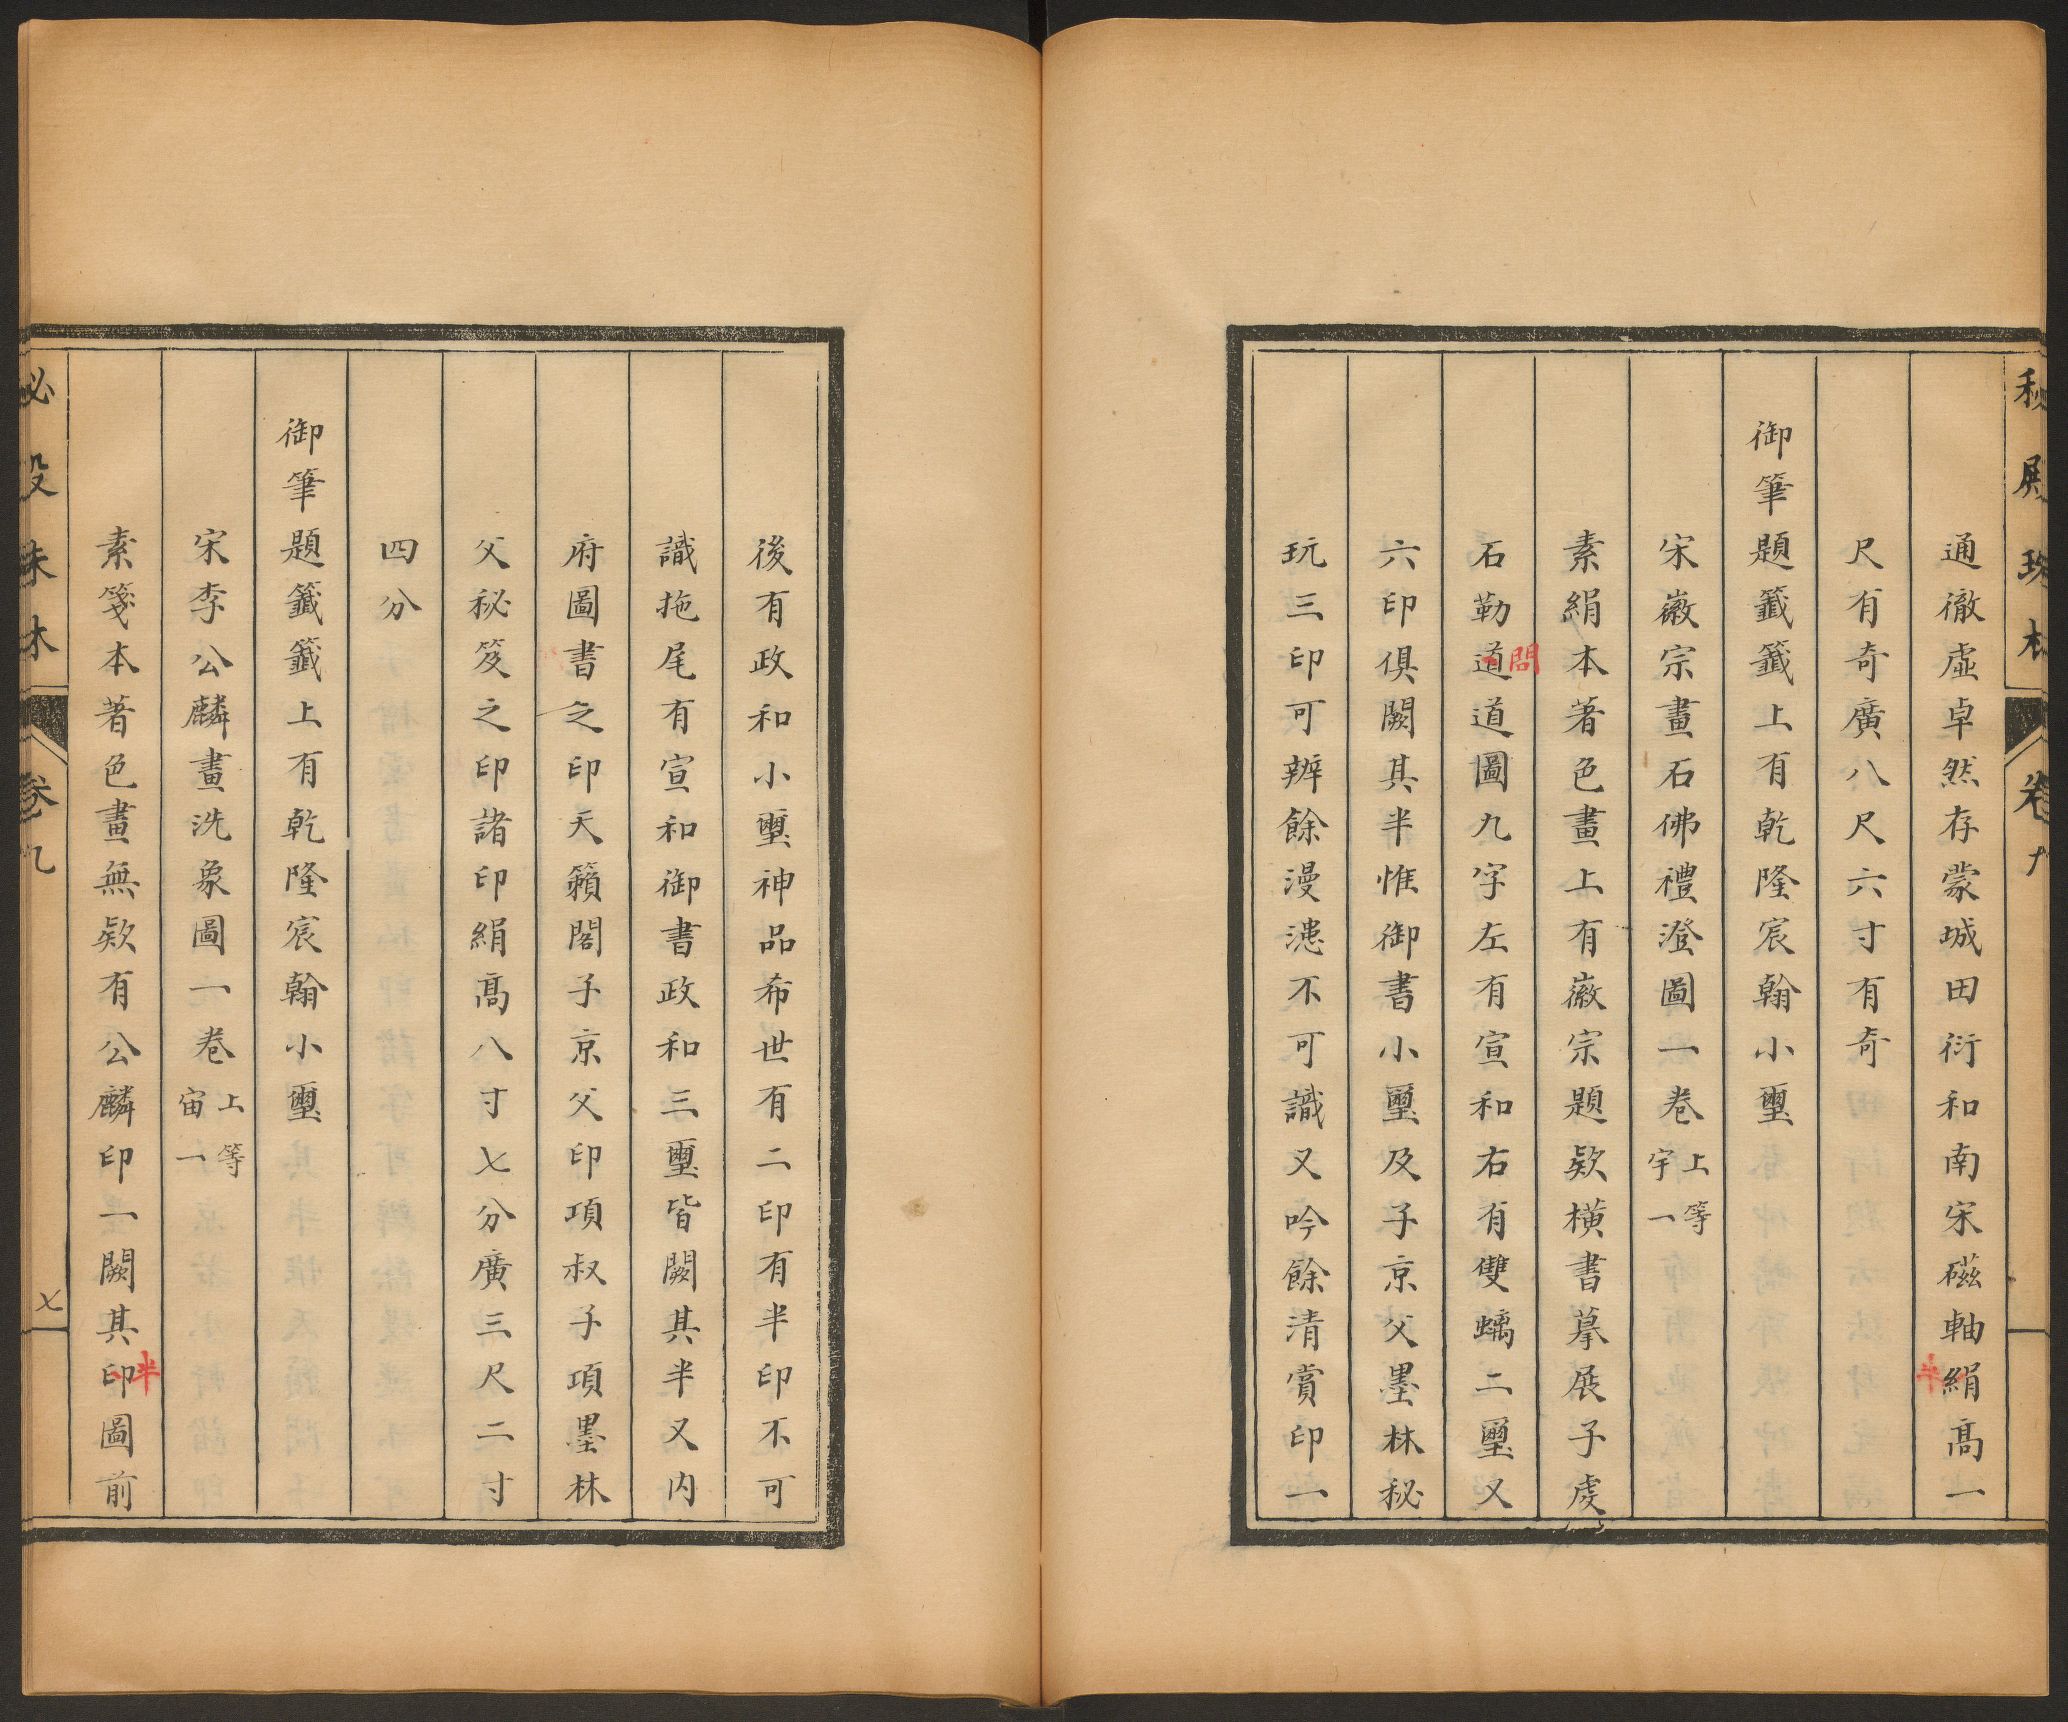 秘殿珠林
卷九
通徹虛卓然存蒙城田衍和南宋磁軸絹高一
半
尺有奇廣八尺六寸有奇
御筆題籤籤上有乾隆宸翰小璽
宋徽宗畫石佛禮澄圖一卷上等宇一
素絹本著色畫上有徽宗題欵橫書摹展子虔
石勒道道圖九字左有宣和右有雙螭二璽又
問
六印俱闕其半惟御書小璽及子京父墨林秘
玩三印可辨餘漫漶不可識又吟餘清賞印一
後有政和小璽神品希世有二印有半印不可
識拖尾有宣和御書政和三璽皆闕其半又內
府圖書之印天籟閣子京父印項叔子項墨林
父秘笈之印諸印絹高八寸七分廣三尺二寸
四分
御筆題籤籤上有乾隆宸翰小璽
宋李公麟畫洗象圖一卷上等宙一
素箋本著色畫無欵有公麟印一闕其印圖前
半
秘殿珠林
卷九
七